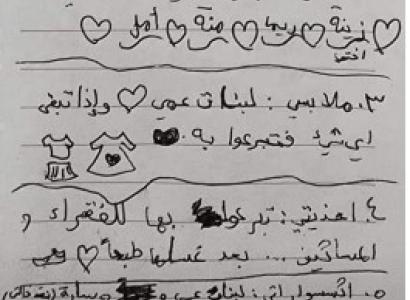 زينة ريما منة أمل
اختها
٣. ملابسي : لبنات عمي وإذا تبقى
اي شيء فتبرعوا به.
٤. احذيتي : تبرعوا بها للفقراء و
المساكين ... بعد غسلها طبعاً
٥. اكسسواراتي : لبنات عمي و سارة